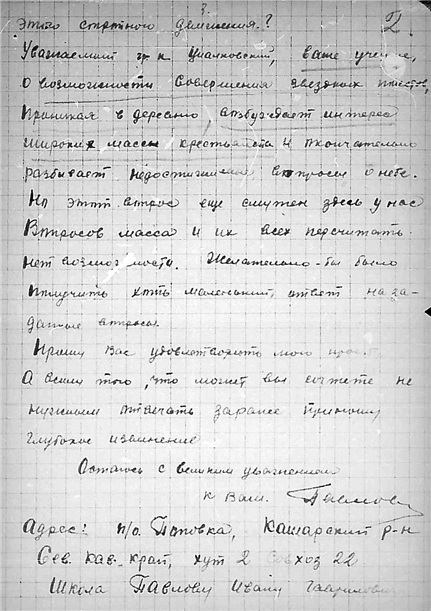 этого стртного движения?
2
Уважаемый гр-н Циолковский, ваше учение,
о возможности совершения звездных плетов,
Проникая в деревню, возбуждает интерес
широких масс крестьянства и окончательно
разбивает недостигшися вопросы о небе.
Но этот вопрос еще смутен здесь у нас
Вопросов масса и их всех пересчитать
нет возможности. Желательно-бы было
получить хоть маленький, ответ на за-
данные вопросы.
Прошу Вас удовлетворить мою
А всили того, что может вы сочтете не
нужным отвечать заранее приношу
глубокое извинение
Остаюсь с великим уважением
к Вам. Павлов
Адрес: п/о. Поповка, Кашарский р-н
Сев. Кав. Край, хут 2 Совхоз 22
Школа Павлову Ивану Гавриловичу